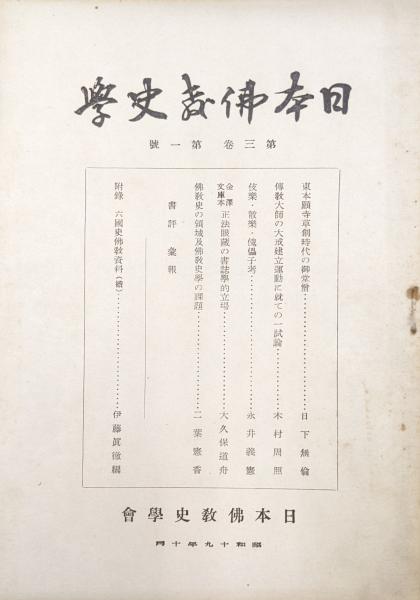 日本佛教史學
第三卷 第一號
東本願寺草創時代の御堂僧 日下無倫
傳敎大師の大戒建立運動に就ての一試論 木村周照
伎樂・散樂・傀儡子考 永井義憲
金澤文庫本 正法眼藏の書誌學的立場 大久保道舟
佛敎史の領域及佛敎史學の課題 二葉憲香
書評 彙報
附錄 六國史佛敎資料(續) 伊藤眞徹編
日本佛敎史學會
昭和十九年十四